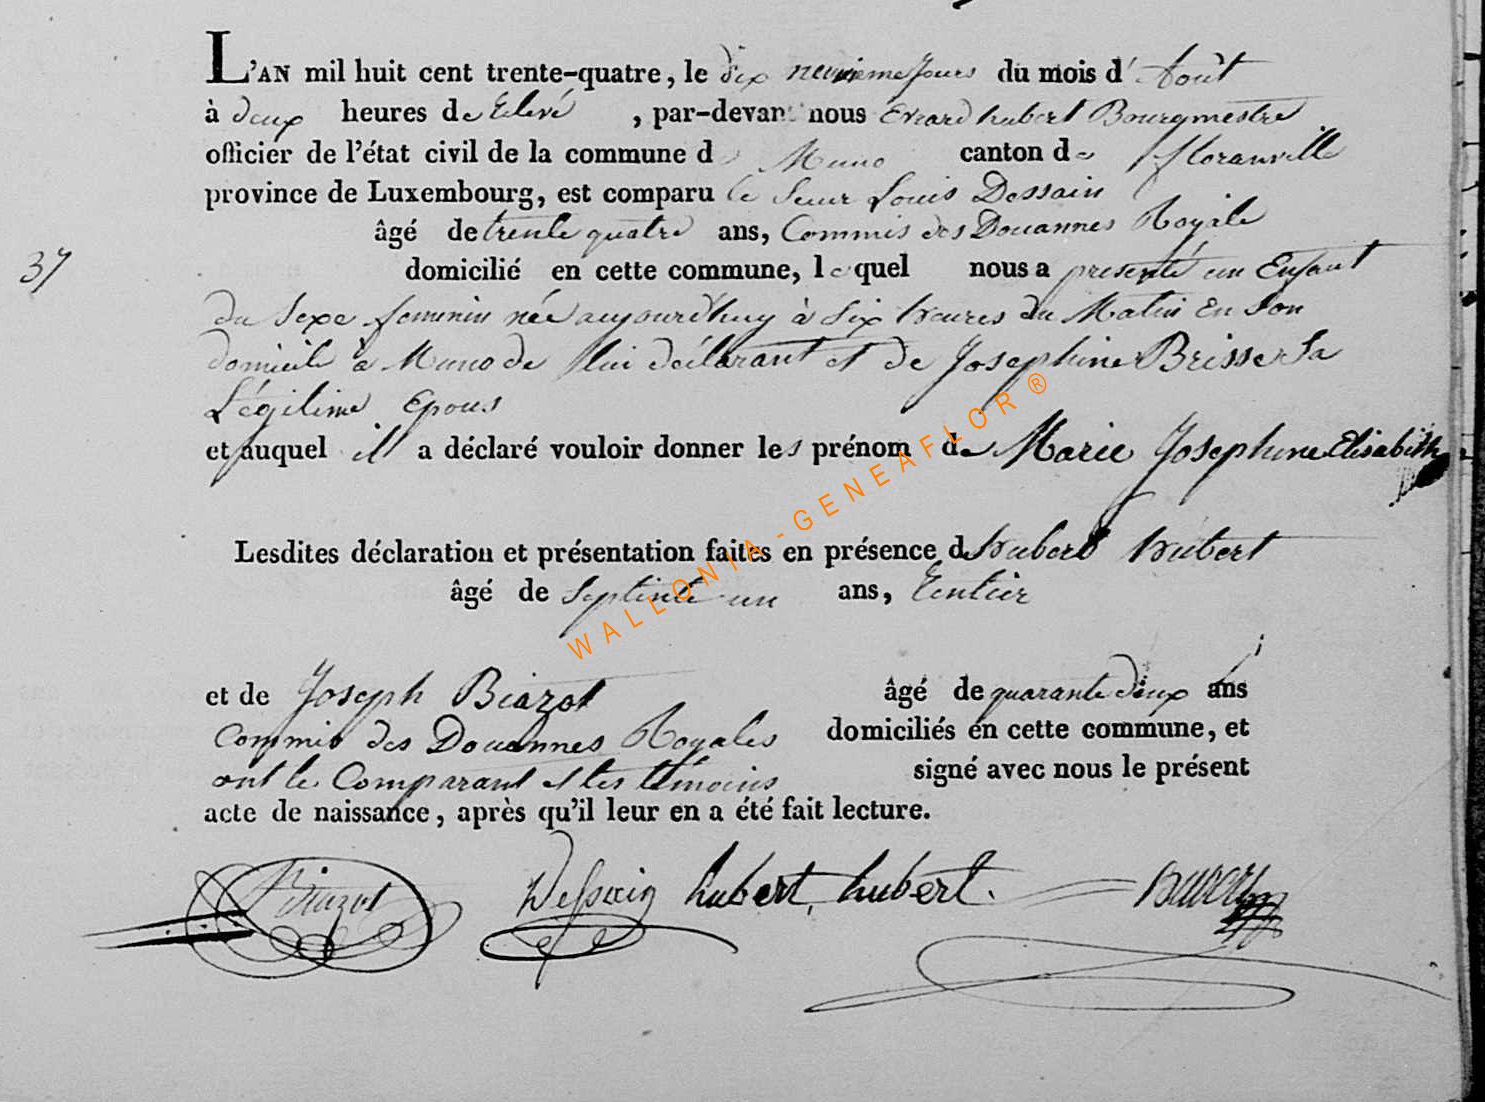 L'AN mil huit cent trente-quatre, le dix neuvieme Jours du mois d' Août
à deux heures de Relevé , par-devant nous Evrard hubert Bourgmestre
officier de l'état civil de la commune de Muno canton de floranville
province de Luxembourg, est comparu le Sieur Louis Dessain
âgé de trente quatre ans, Commis des Douannes Royale
37
domicilié en cette commune, lequel nous a presenté un Enfant
du Sexe feminin née aujourd'huy à Six heures du Matin En Son
domicile à Muno de lui déclarant et de Josephine Brisse Sa
Légitime Epous
et auquel il a déclaré vouloir donner les prénom de Marie Josephine Elisabith
Lesdites déclaration et présentation faites en présence d hubert hubert
âgé de Septente un ans, Rentier
et de Joseph Biazot âgé de quarante deux ans
Commis des Douannes Royales domiciliés en cette commune, et
ont le Comparant et les témoins signé avec nous le présent
acte de naissance, après qu'il leur en a été fait lecture.
Biazot Dessain hubert, hubert.
WALLONIA-GENEAFLOR®